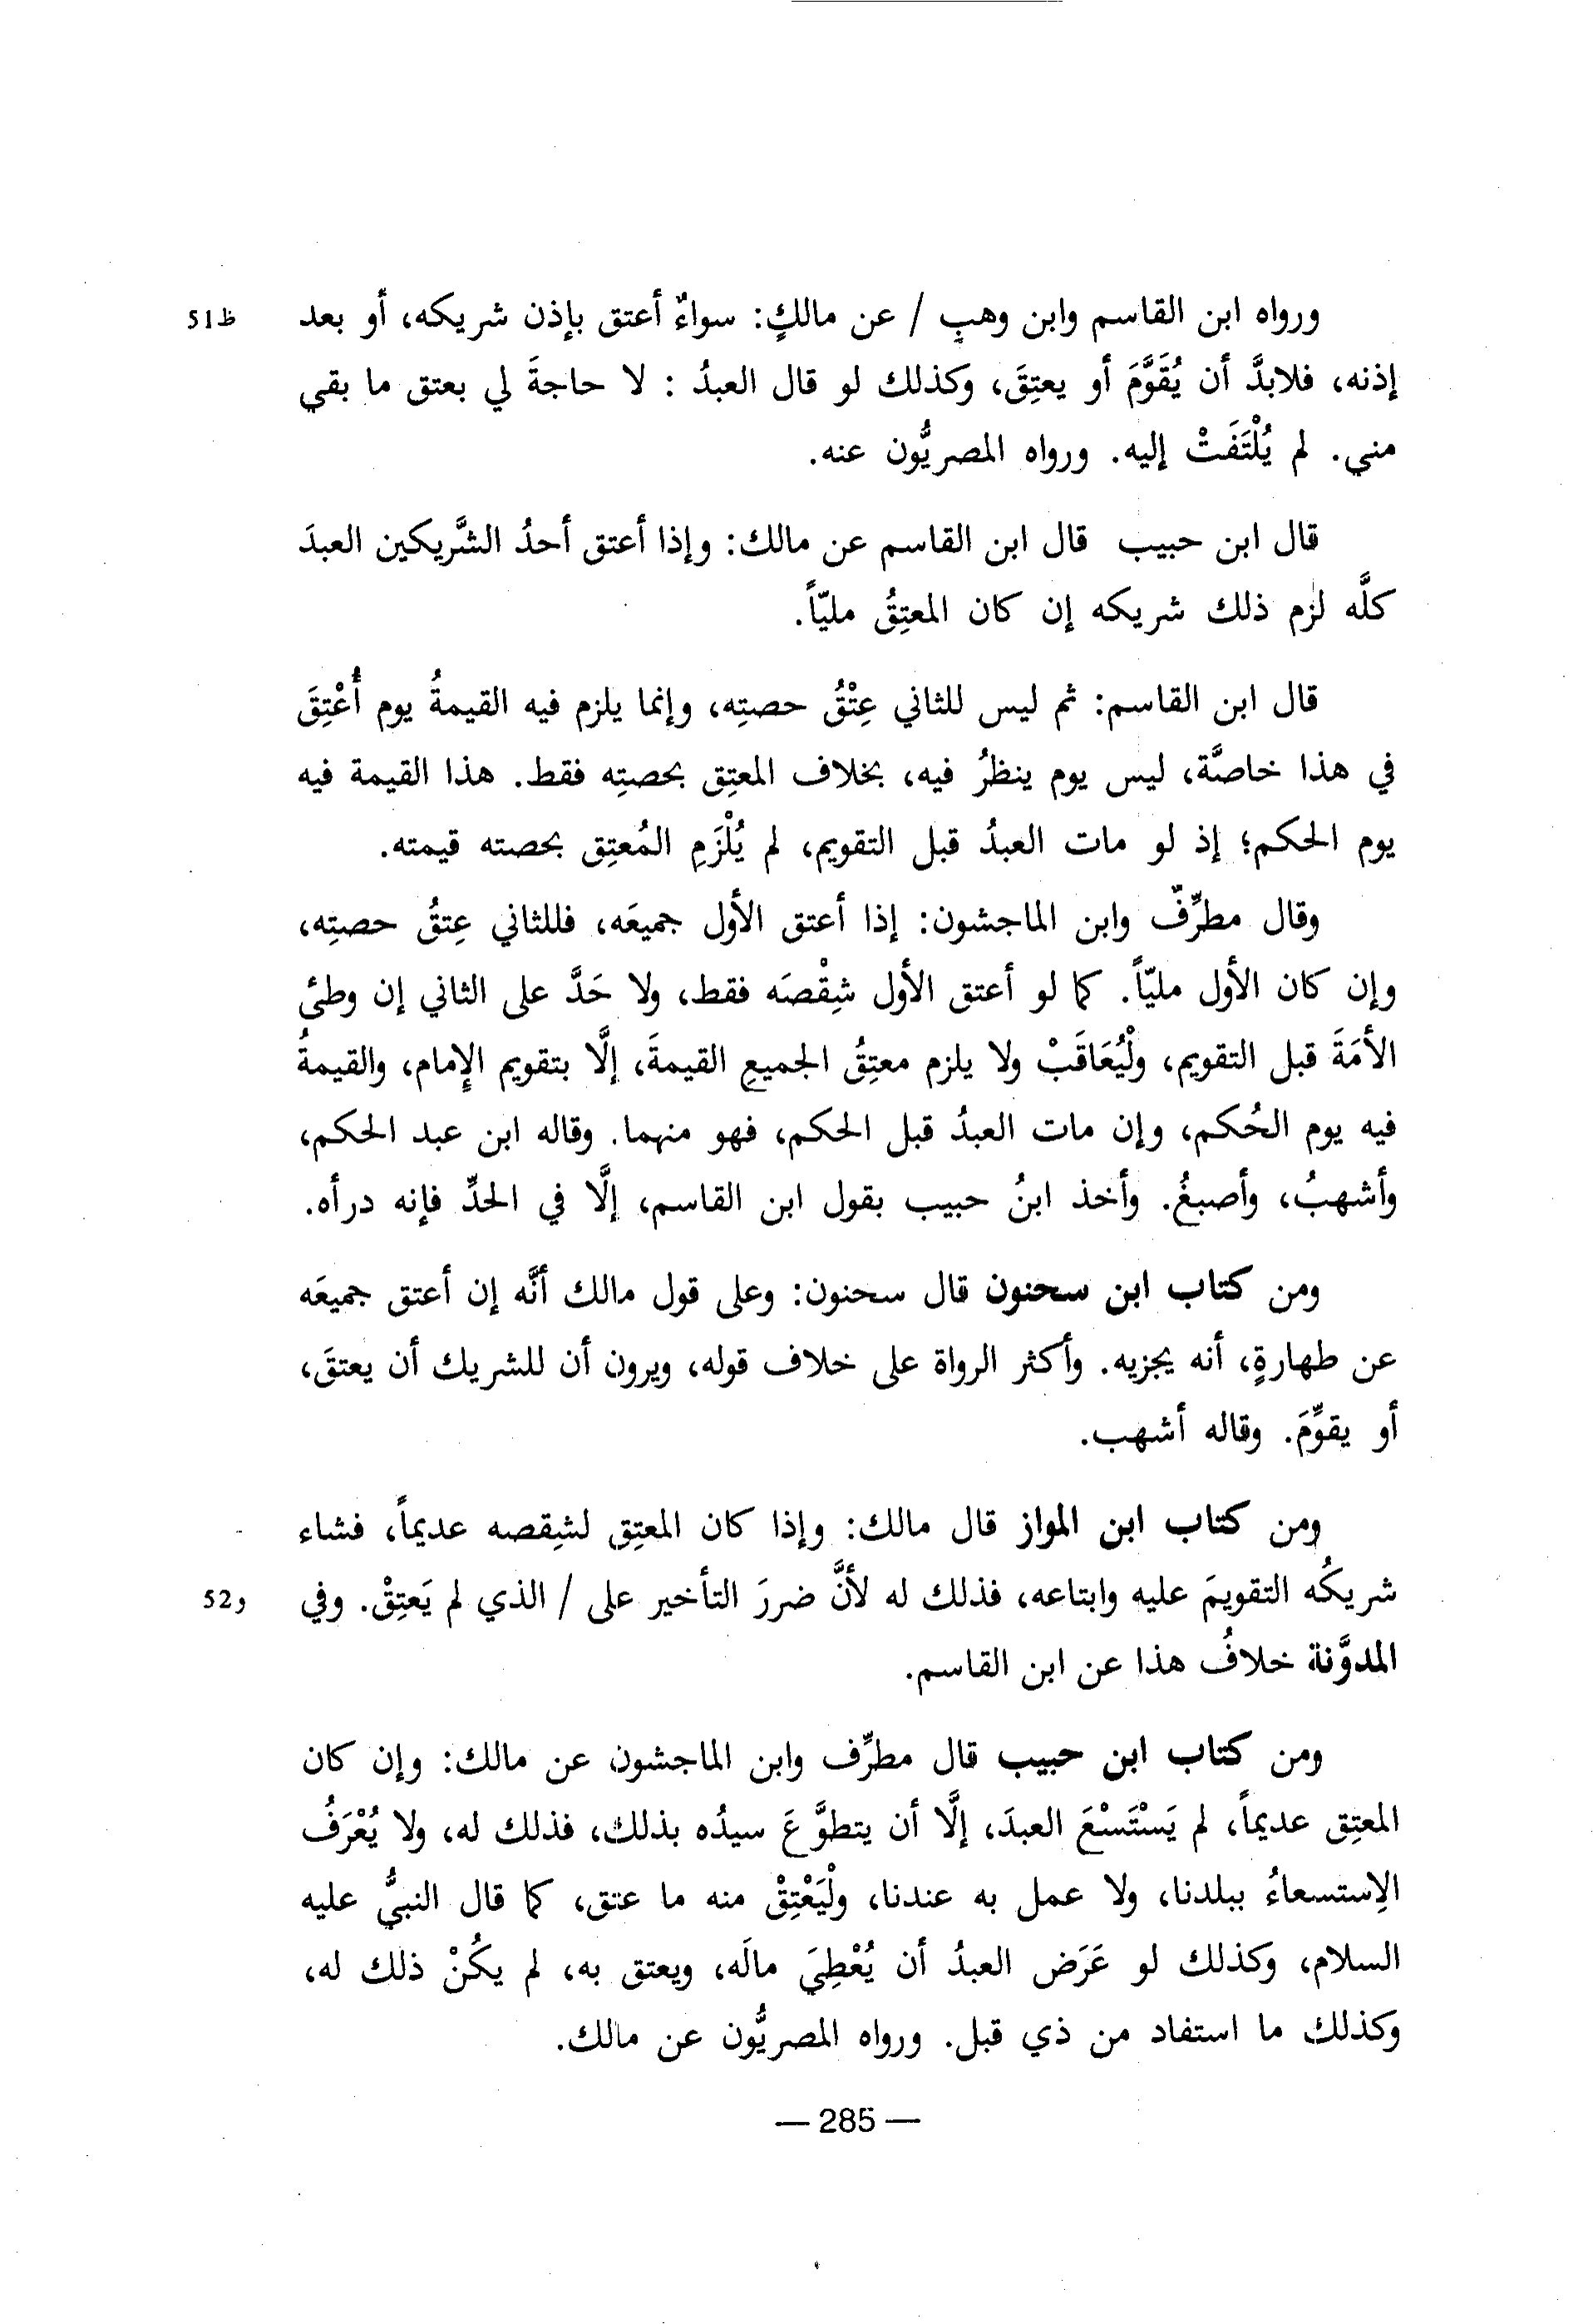 ورواه ابن القاسم وابن وهبٍ / عن مالكٍ: سواءٌ أعتق بإذن شريكه، أو بعد
ظ51
إذنه، فلابدَّ أن يُقَوَّمَ أو يعتِقَ، وكذلك لو قال العبدُ : لا حاجةَ لي بعتق ما بقي
مني. لم يُلْتَفَتْ إليه. ورواه المصريُّون عنه.
قال ابن حبيب قال ابن القاسم عن مالك: وإذا أعتق أحدُ الشَّريكين العبدَ
كلَّه لزم ذلك شريكه إن كان المعتِقُ مليّاً.
قال ابن القاسم: ثم ليس للثاني عِتْقُ حصتِه، وإنما يلزم فيه القيمةُ يوم أُعْتِقَ
في هذا خاصَّة، ليس يوم ينظرُ فيه، بخلاف المعتِق بحصتِه فقط. هذا القيمة فيه
يوم الحكم؛ إذ لو مات العبدُ قبل التقويم، لم يُلْزَمِ المُعتِق بحصته قيمته.
وقال مطرِّفٌ وابن الماجشون: إذا أعتق الأول جميعَه، فللثاني عِتقُ حصتِه،
وإن كان الأول مليّاً. كما لو أعتق الأول شِقْصَه فقط، ولا حَدَّ على الثاني إن وطئ
الأمَةَ قبل التقويم، ولْيُعَاقَبْ ولا يلزم معتِقُ الجميعِ القيمةَ، إلَّا بتقويم الإمام، والقيمةُ
فيه يوم الحُكم، وإن مات العبدُ قبل الحكم، فهو منهما. وقاله ابن عبد الحكم،
وأشهبُ، وأصبغُ. وأخذ ابنُ حبيب بقول ابن القاسم، إلَّا في الحدِّ فإنه درأه.
ومن كتاب ابن سحنون قال سحنون: وعلى قول مالك أنَّه إن أعتق جميعَه
عن طهارةٍ، أنه يجزيه. وأكثر الرواة على خلاف قوله، ويرون أن للشريك أن يعتقَ،
أو يقوِّمَ. وقاله أشهب.
ومن كتاب ابن المواز قال مالك: وإذا كان المعتِق لشِقصه عديماً، فشاء
شريكُه التقويمَ عليه وابتاعه، فذلك له لأنَّ ضررَ التأخير على / الذي لم يَعتِقْ. وفي
و52
المدوَّنة خلافُ هذا عن ابن القاسم.
ومن كتاب ابن حبيب قال مطرِّف وابن الماجشون عن مالك: وإن كان
المعتِق عديماً، لم يَسْتَسْعَ العبدَ، إلَّا أن يتطوَّعَ سيدُه بذلك، فذلك له، ولا يُعْرَفُ
الاِستسعاءُ ببلدنا، ولا عمل به عندنا، ولْيَعْتِقْ منه ما عتق، كما قال النبيُّ عليه
السلام، وكذلك لو عَرَض العبدُ أن يُعْطِيَ مالَه، ويعتق به، لم يكُنْ ذلك له،
وكذلك ما استفاد من ذي قبل. ورواه المصريُّون عن مالك.
— 285 —